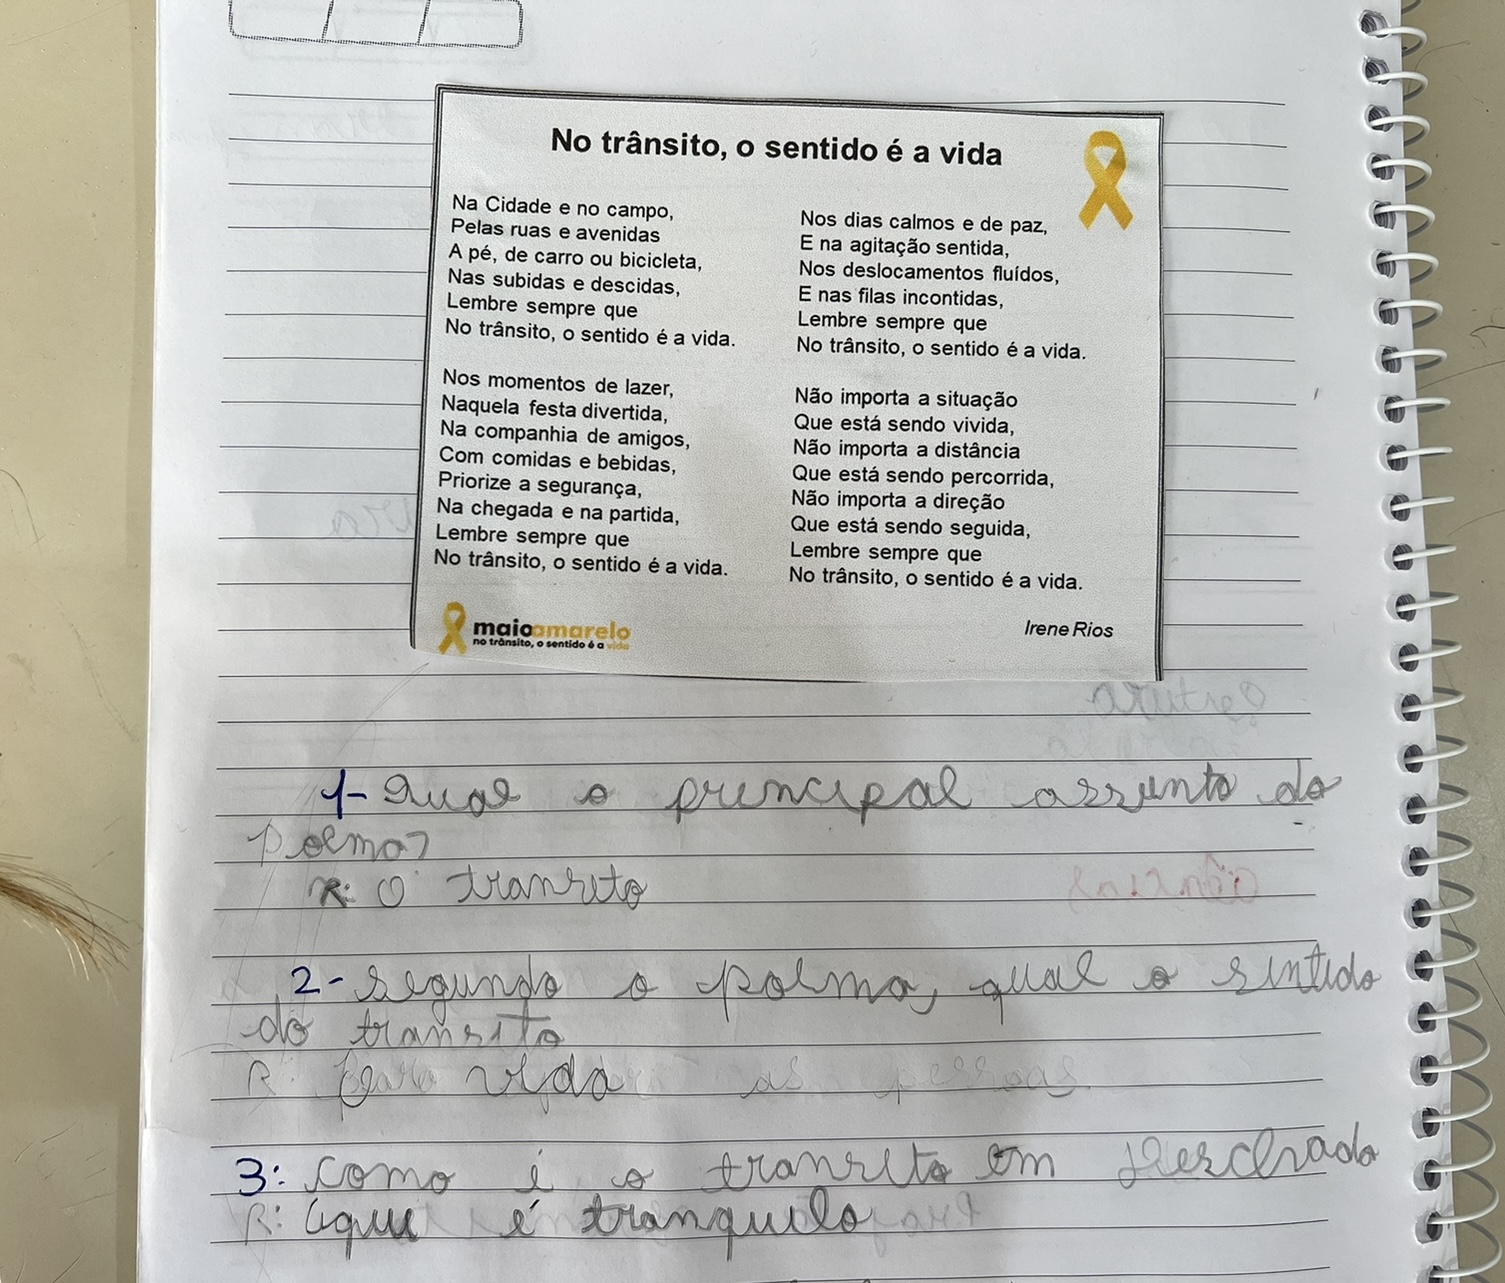 No trânsito, o sentido é a vida
Na Cidade e no campo,
Pelas ruas e avenidas
A pé, de carro ou bicicleta,
Nas subidas e descidas,
Lembre sempre que
No trânsito, o sentido é a vida.
Nos momentos de lazer,
Naquela festa divertida,
Na companhia de amigos,
Com comidas e bebidas,
Priorize a segurança,
Na chegada e na partida,
Lembre sempre que
No trânsito, o sentido é a vida.
Nos dias calmos e de paz,
E na agitação sentida,
Nos deslocamentos fluídos,
E nas filas incontidas,
Lembre sempre que
No trânsito, o sentido é a vida.
Não importa a situação
Que está sendo vivida,
Não importa a distância
Que está sendo percorrida,
Não importa a direção
Que está sendo seguida,
Lembre sempre que
No trânsito, o sentido é a vida.
Irene Rios
maioamarelo
no trânsito, o sentido é a vida
1- Qual o principal assunto do
Poema?
R: O transito
2- segundo o poema, qual o sentido
do transito
R: vida
3: como é o transito em
R: aqui é tranquilo